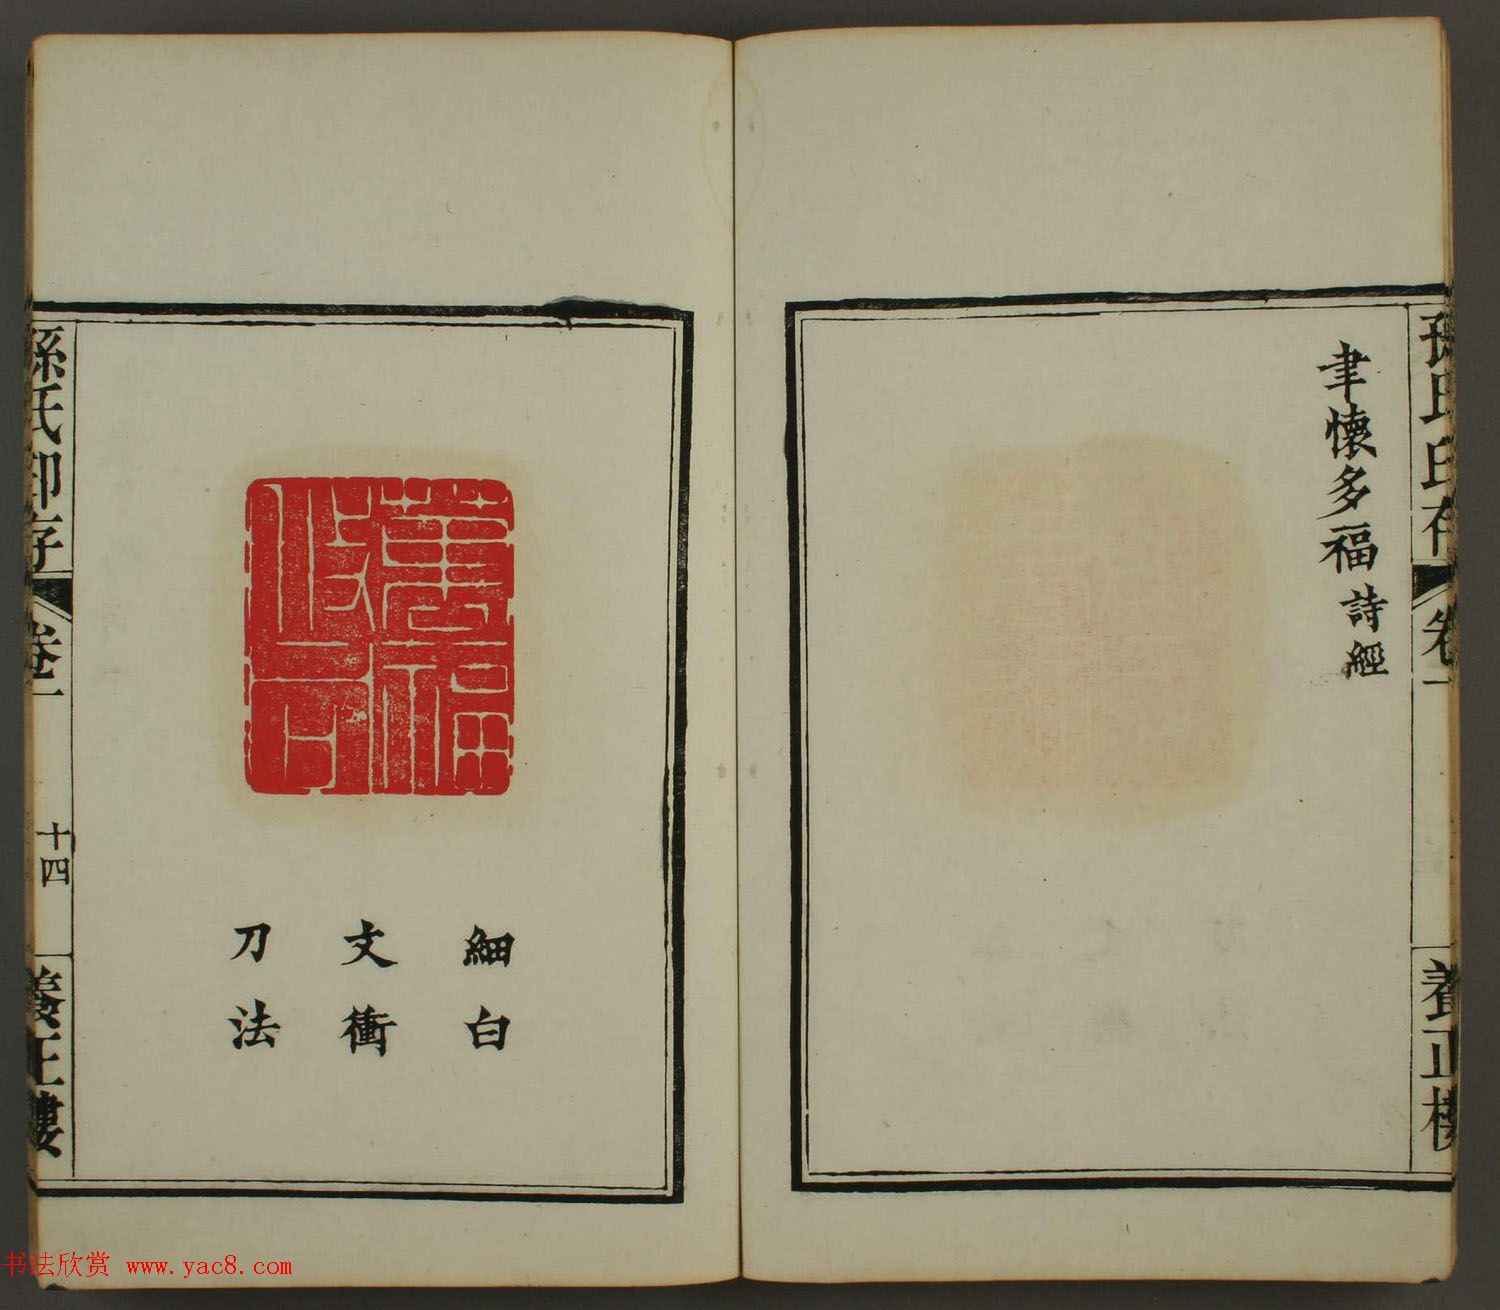 孫氏印存 卷一 養正樓
聿懷多福 詩經
萬福
攸同
細白
文衝
刀法
孫氏印存 卷一 十四 養正樓
书法欣赏 www.yac8.com